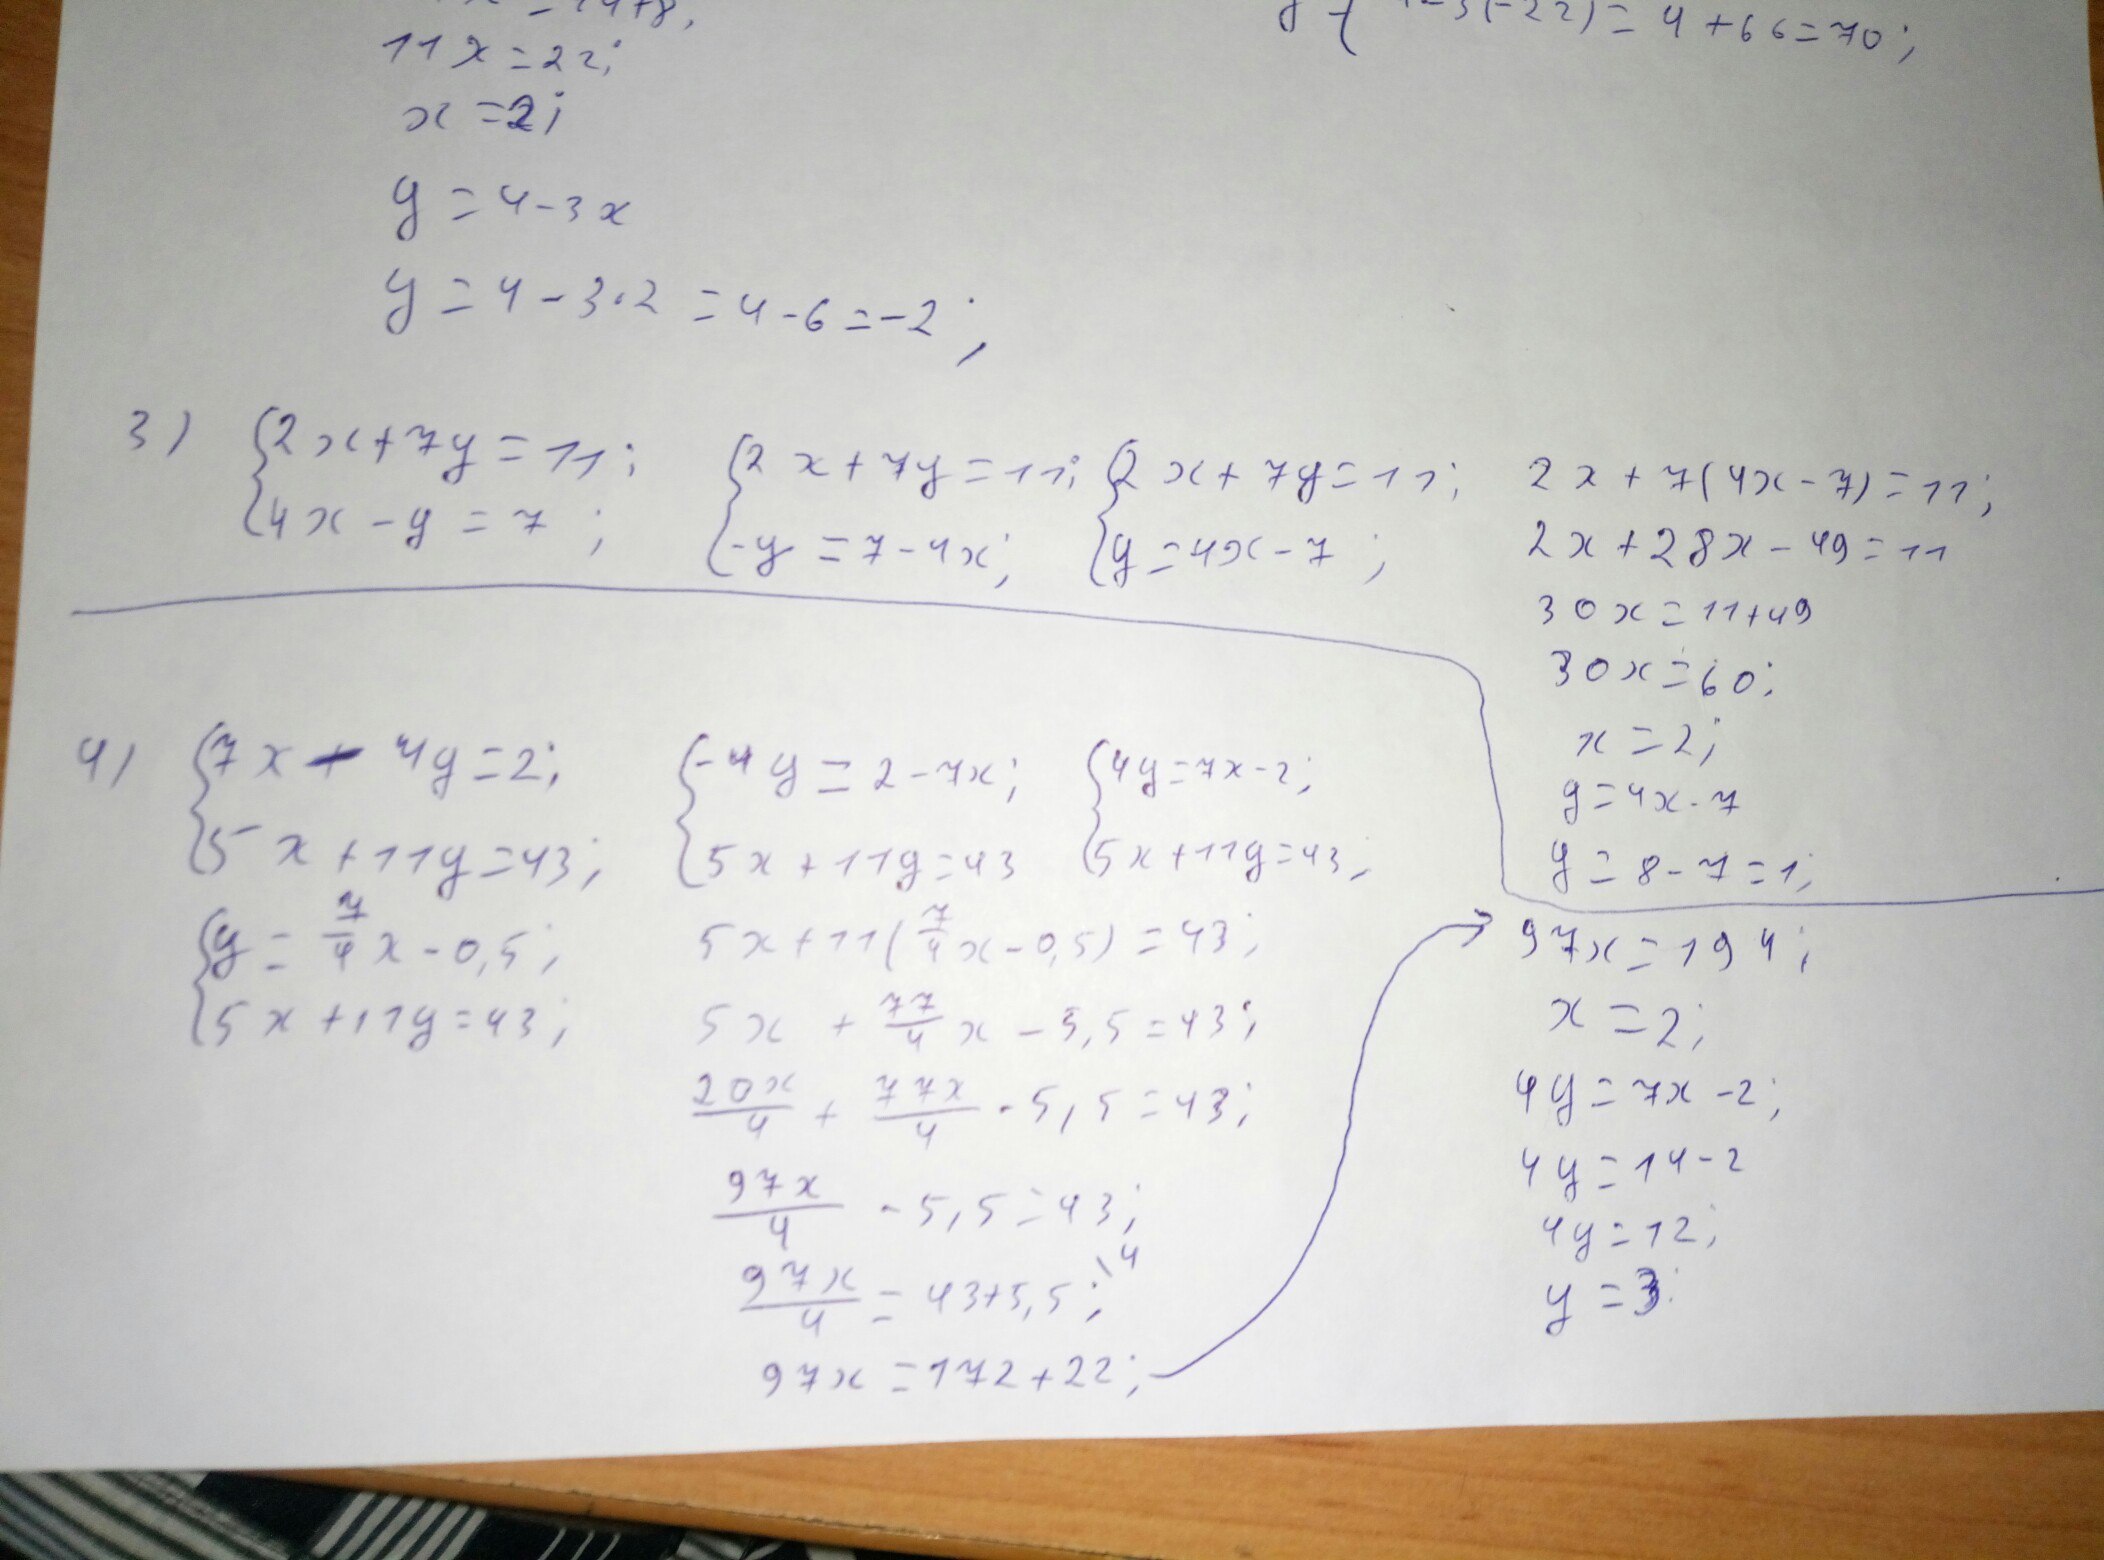 11x=22;
x=2;
y=4-3x
y=4-3·2=4-6=-2;
-3(-22)=4+66=70;
3) {2x+7y=11; {2x+7y=11; {2x+7y=11;
{4x-y=7; {-y=7-4x; {y=4x-7;
2x+7(4x-7)=11;
2x+28x-49=11
30x=11+49
30x=60;
x=2;
y=4x-7
y=8-7=1;
4) {7x-4y=2; {-4y=2-7x; {4y=7x-2;
{5x+11y=43; {5x+11y=43 {5x+11y=43;
{y=7/4x-0,5;
{5x+11y=43;
5x+11(7/4x-0,5)=43;
5x+77/4x-5,5=43;
20x/4+77x/4-5,5=43;
97x/4-5,5=43;
97x/4=43+5,5; \4
97x=172+22;
97x=194;
x=2;
4y=7x-2;
4y=14-2
4y=12;
y=3;